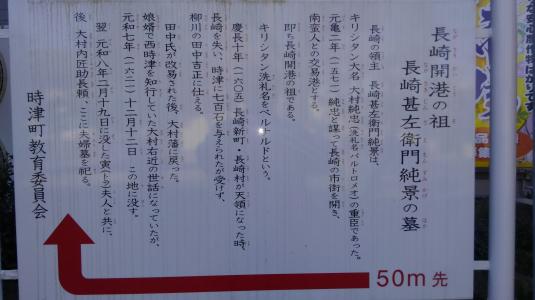 長崎開港の祖
長崎甚左衛門純景の墓
長崎の領主 長崎甚左衛門純景は、
キリシタン大名 大村純忠(洗礼名バルトロメオ)の重臣であった。
元亀二年(一五七一)純忠と謀って長崎の市街を開き、
南蛮人との交易港とする。
即ち長崎開港の祖である。
キリシタン洗礼名をベルナルドという。
慶長十年(一六〇五)長崎新町・長崎村が天領になった時、
長崎を失い、時津に七百石を与えられたが受けず、
柳川の田中吉正に仕える。
田中氏が改易された後、大村藩に戻った。
娘婿で西時津を知行していた大村右近の世話になっていたが、
元和七年(一六二一)十二月十二日 この地に没す。
翌 元和八年二月十九日に没した寅(トラ)夫人と共に、
後 大村内匠助長頼、ここに夫婦墓を祀る。
時津町教育委員会
50m先